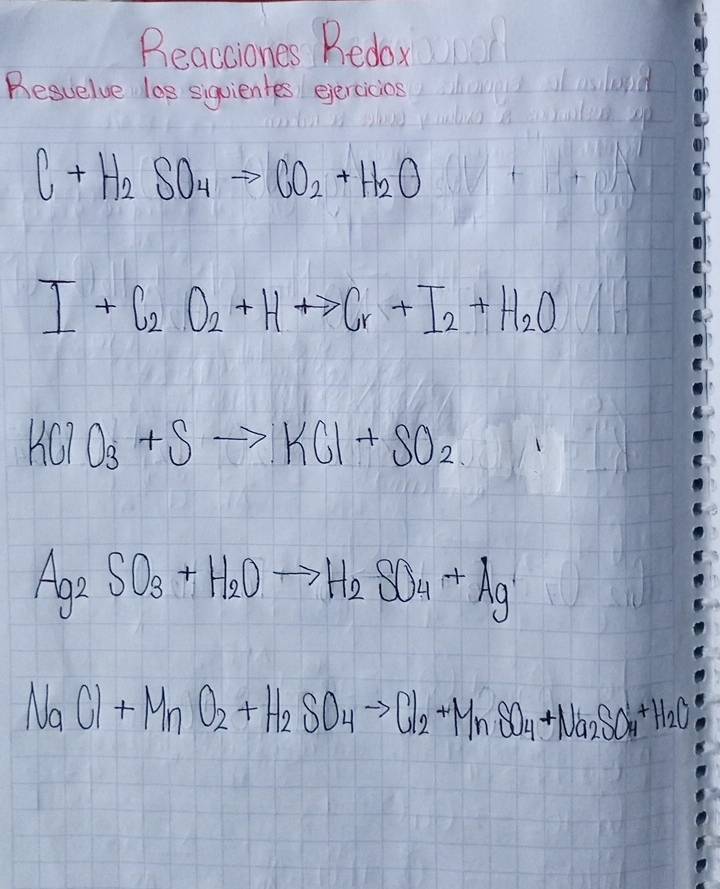 Reacciones Redox
Resuelve los siguientes ejercicios
C + H₂ SO₄ → CO₂ + H₂O
I + C₂ O₂ + H +→ Cr + I₂ + H₂O
KCl O₃ + S → KCl + SO₂
Ag₂ SO₃ + H₂O → H₂ SO₄ + Ag
Na Cl + Mn O₂ + H₂ SO₄ → Cl₂ + Mn SO₄ + Na₂SO₄ + H₂O